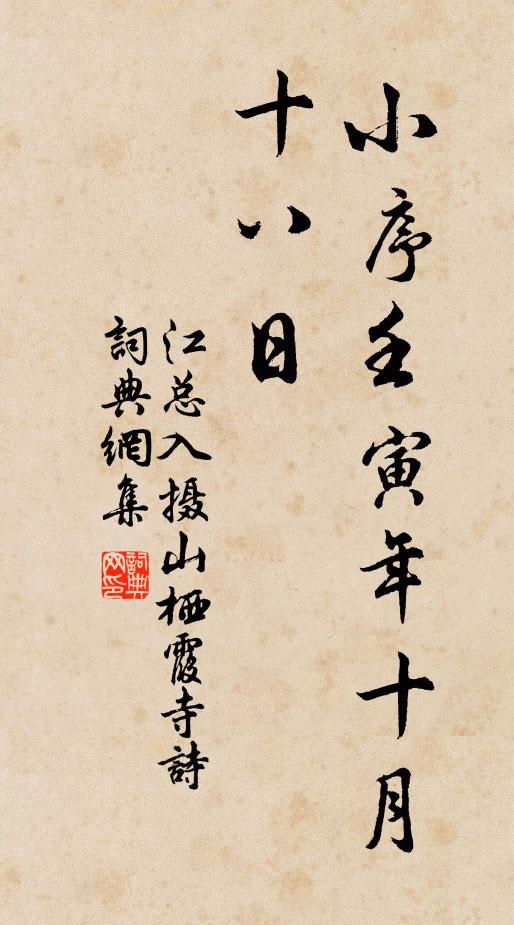 小序壬寅年十月
十八日
江总入摄山栖霞寺詩
詞典網集
詞典
网印